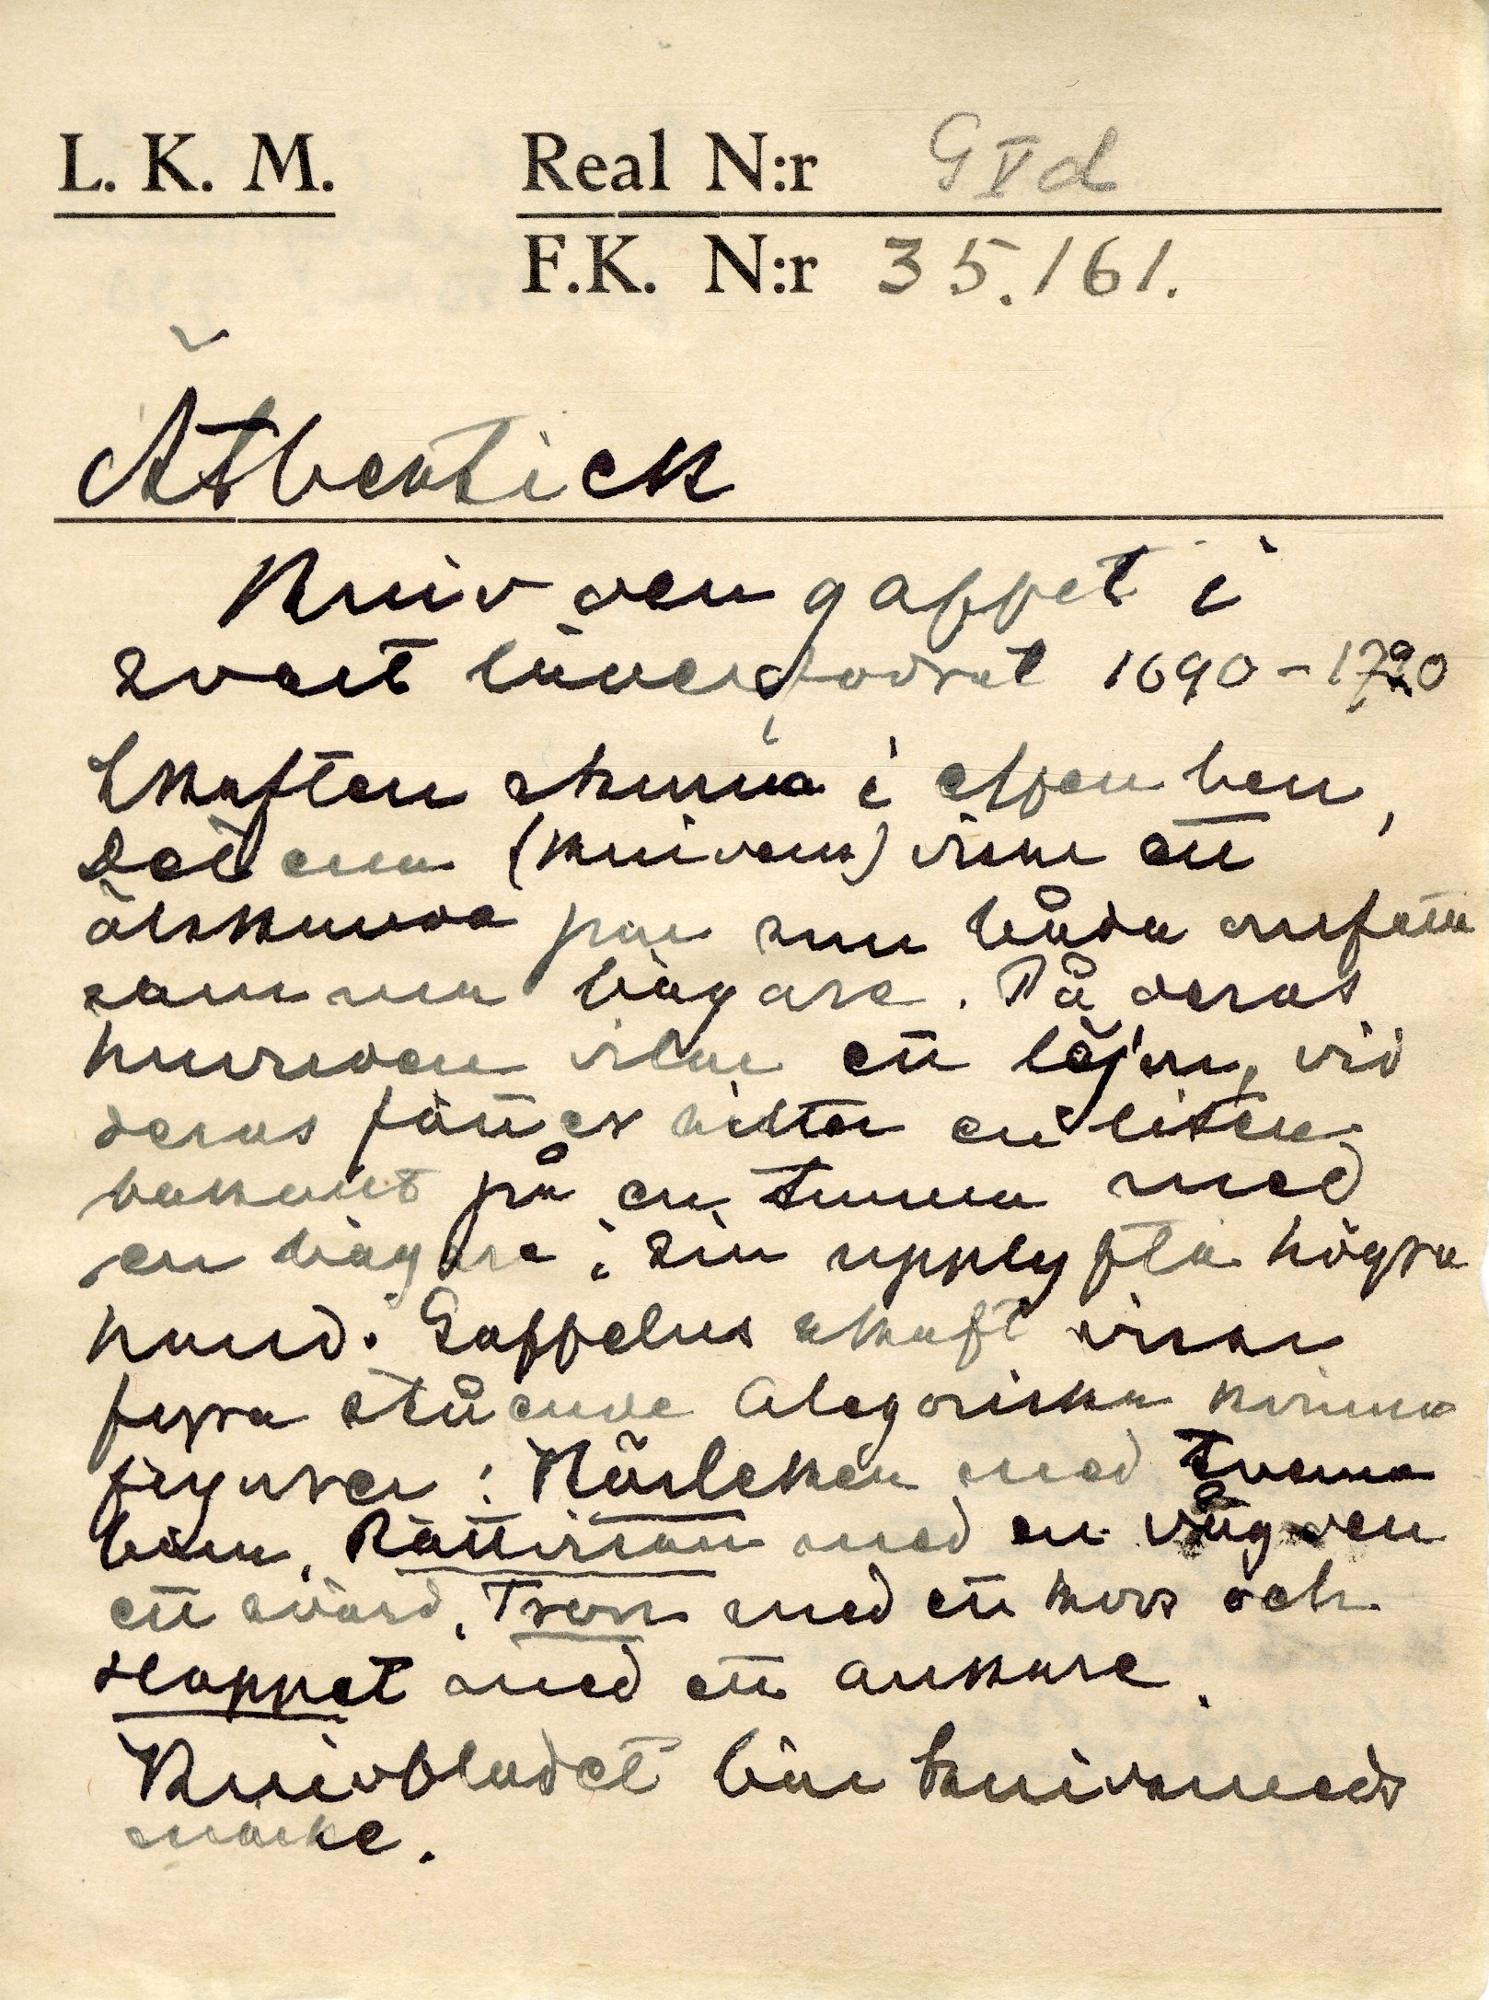 L. K. M. Real N:r G V d
F.K. N:r 35.161.
Ätbestick
Kniv och gaffel i
svart läderfodral 1690–1720
Skaften skurna i elfenben,
Det ena (knivens) visar ett
älskande par som båda omfatta
samma bägare. På deras
huvuden vilar ett lejon, vid
deras fötter sitter en liten
bakant på en tunna med
en bägare i sin upplyfta högra
hand. Gaffelns skaft visar
fyra stående alegoriska kvinno
figurer: Kärleken med tvenne
barn, Rättvisan med en våg och
ett svärd, Tron med ett kors och
Hoppet med ett ankare.
Knivbladet bär knivsmeds
märke.